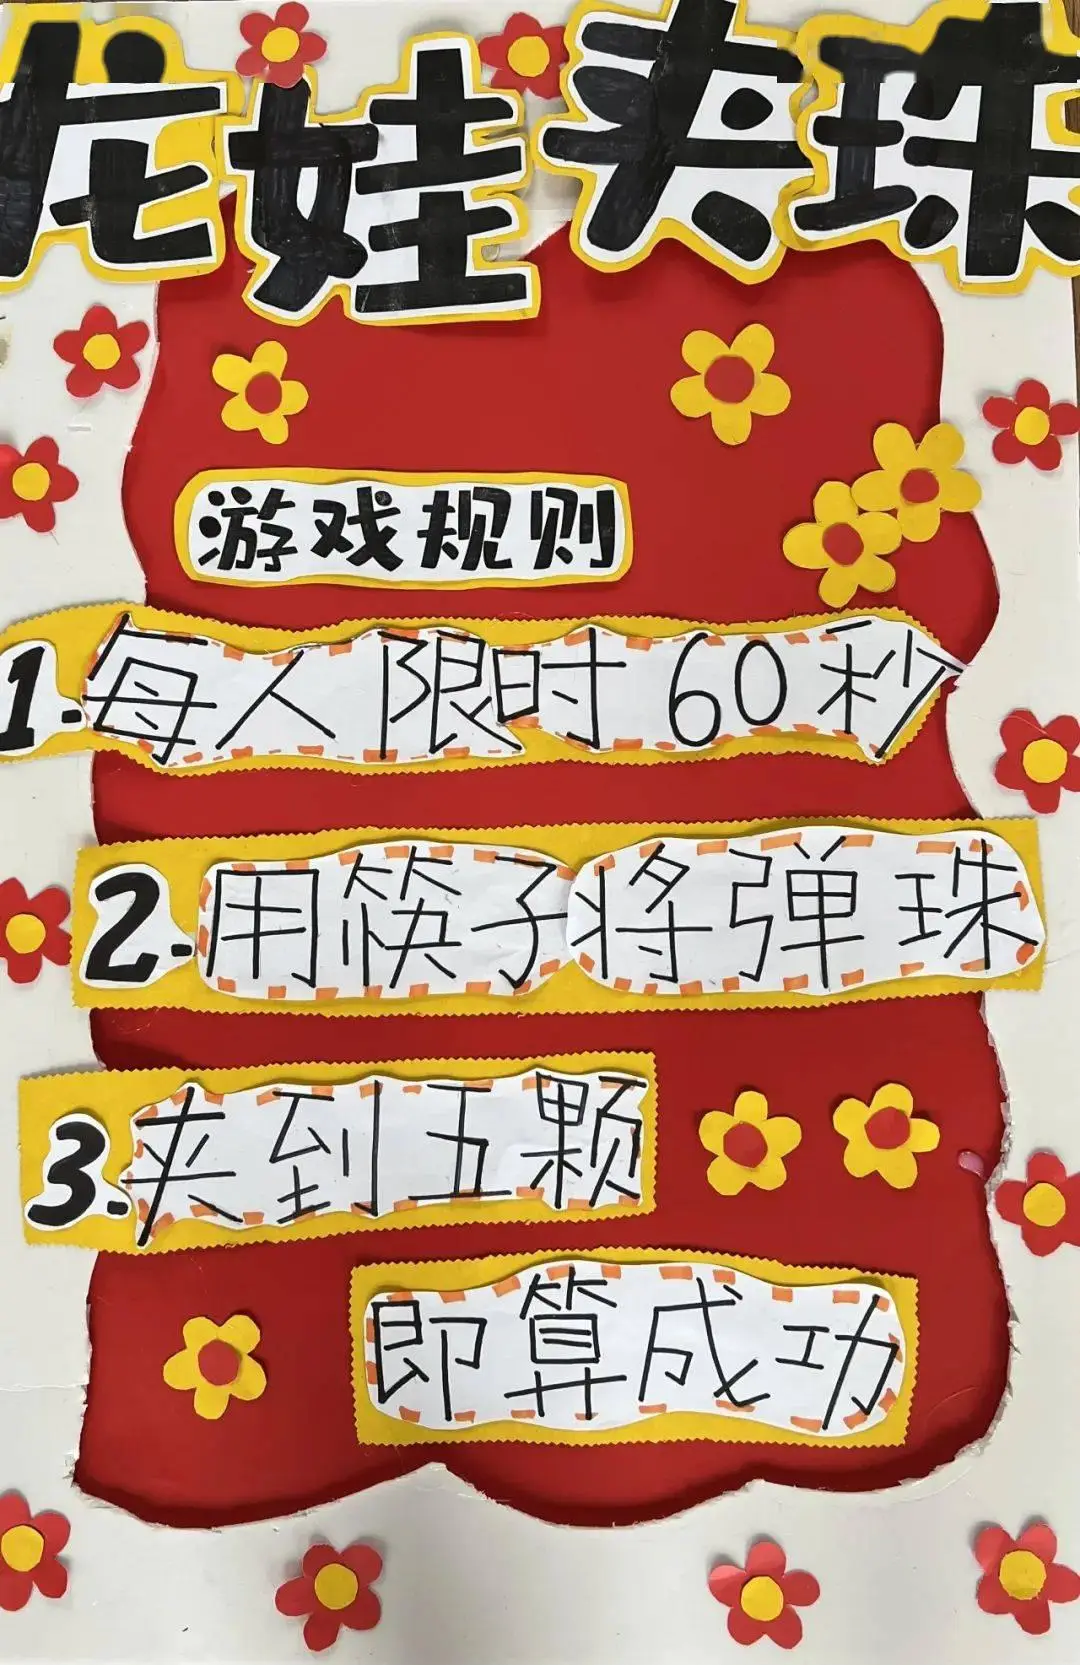 龙娃夹珠
游戏规则
1.每人限时60秒
2.用筷子将弹珠
3.夹到五颗
即算成功